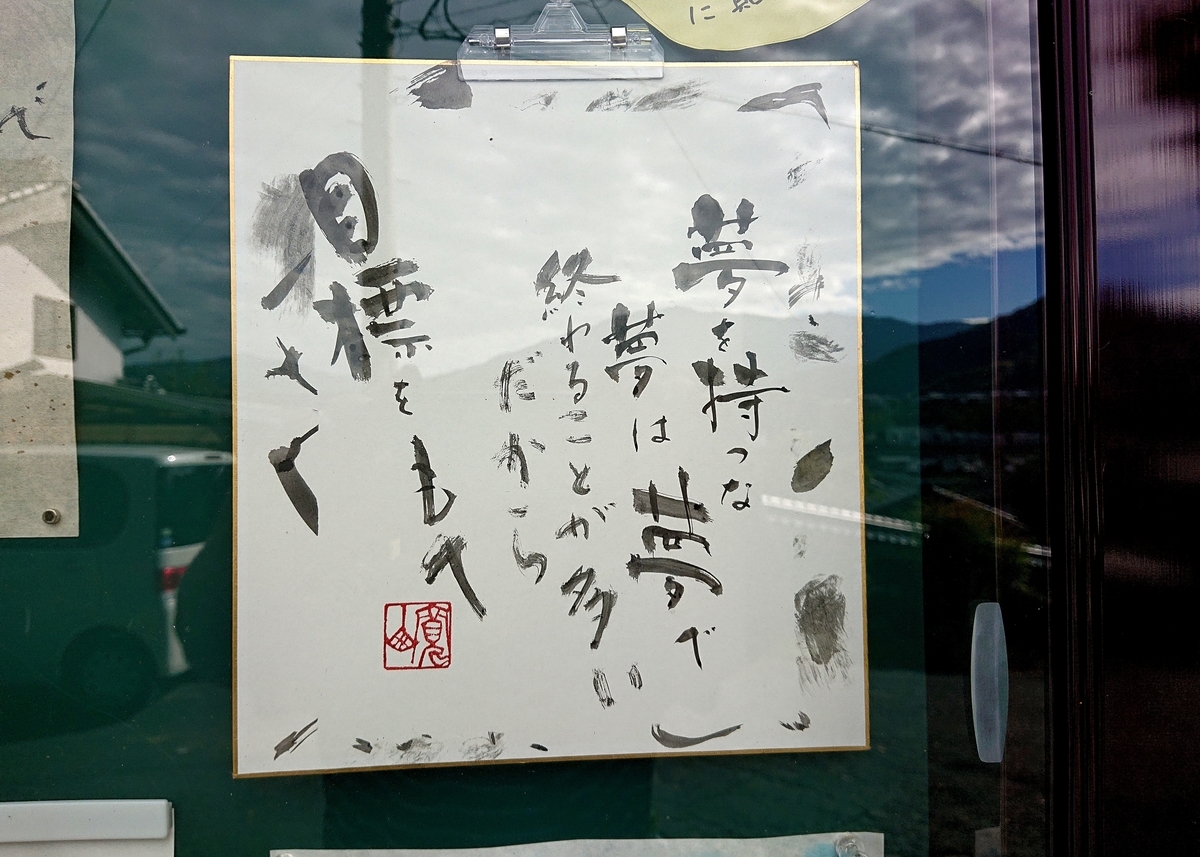 夢を持つな
夢は夢で
終わることが多い
だから
目標をもて
に